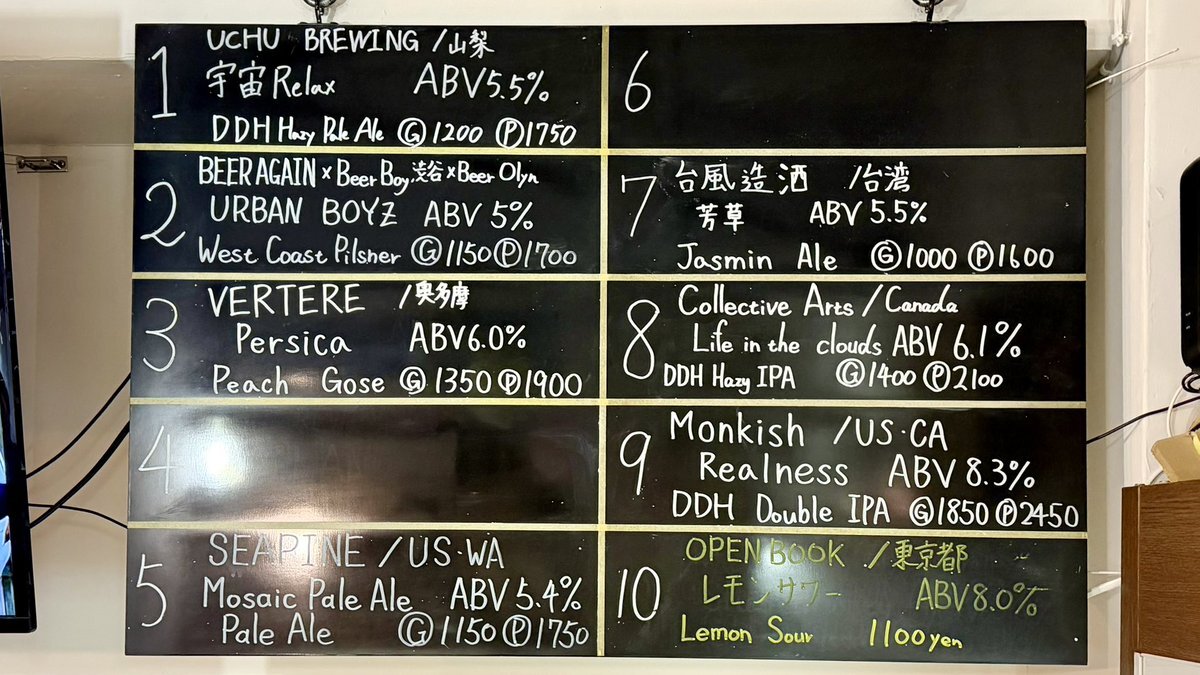 1
UCHU BREWING /山梨
宇宙 Relax ABV 5.5%
DDH Hazy Pale Ale Ⓖ1200 Ⓟ1750
2
BEER AGAIN × Beer Boy 渋谷 × Beer Olyn
URBAN BOYZ ABV 5%
West Coast Pilsner Ⓖ1150 Ⓟ1700
3
VERTERE /奥多摩
Persica ABV 6.0%
Peach Gose Ⓖ1350 Ⓟ1900
4
5
SEAPINE /US・WA
Mosaic Pale Ale ABV 5.4%
Pale Ale Ⓖ1150 Ⓟ1750
6
7
台風造酒 /台湾
芳草 ABV 5.5%
Jasmin Ale Ⓖ1000 Ⓟ1600
8
Collective Arts / Canada
Life in the clouds ABV 6.1%
DDH Hazy IPA Ⓖ1400 Ⓟ2100
9
Monkish /US・CA
Realness ABV 8.3%
DDH Double IPA Ⓖ1850 Ⓟ2450
10
OPEN BOOK /東京都
レモンサワー ABV 8.0%
Lemon Sour 1100 yen